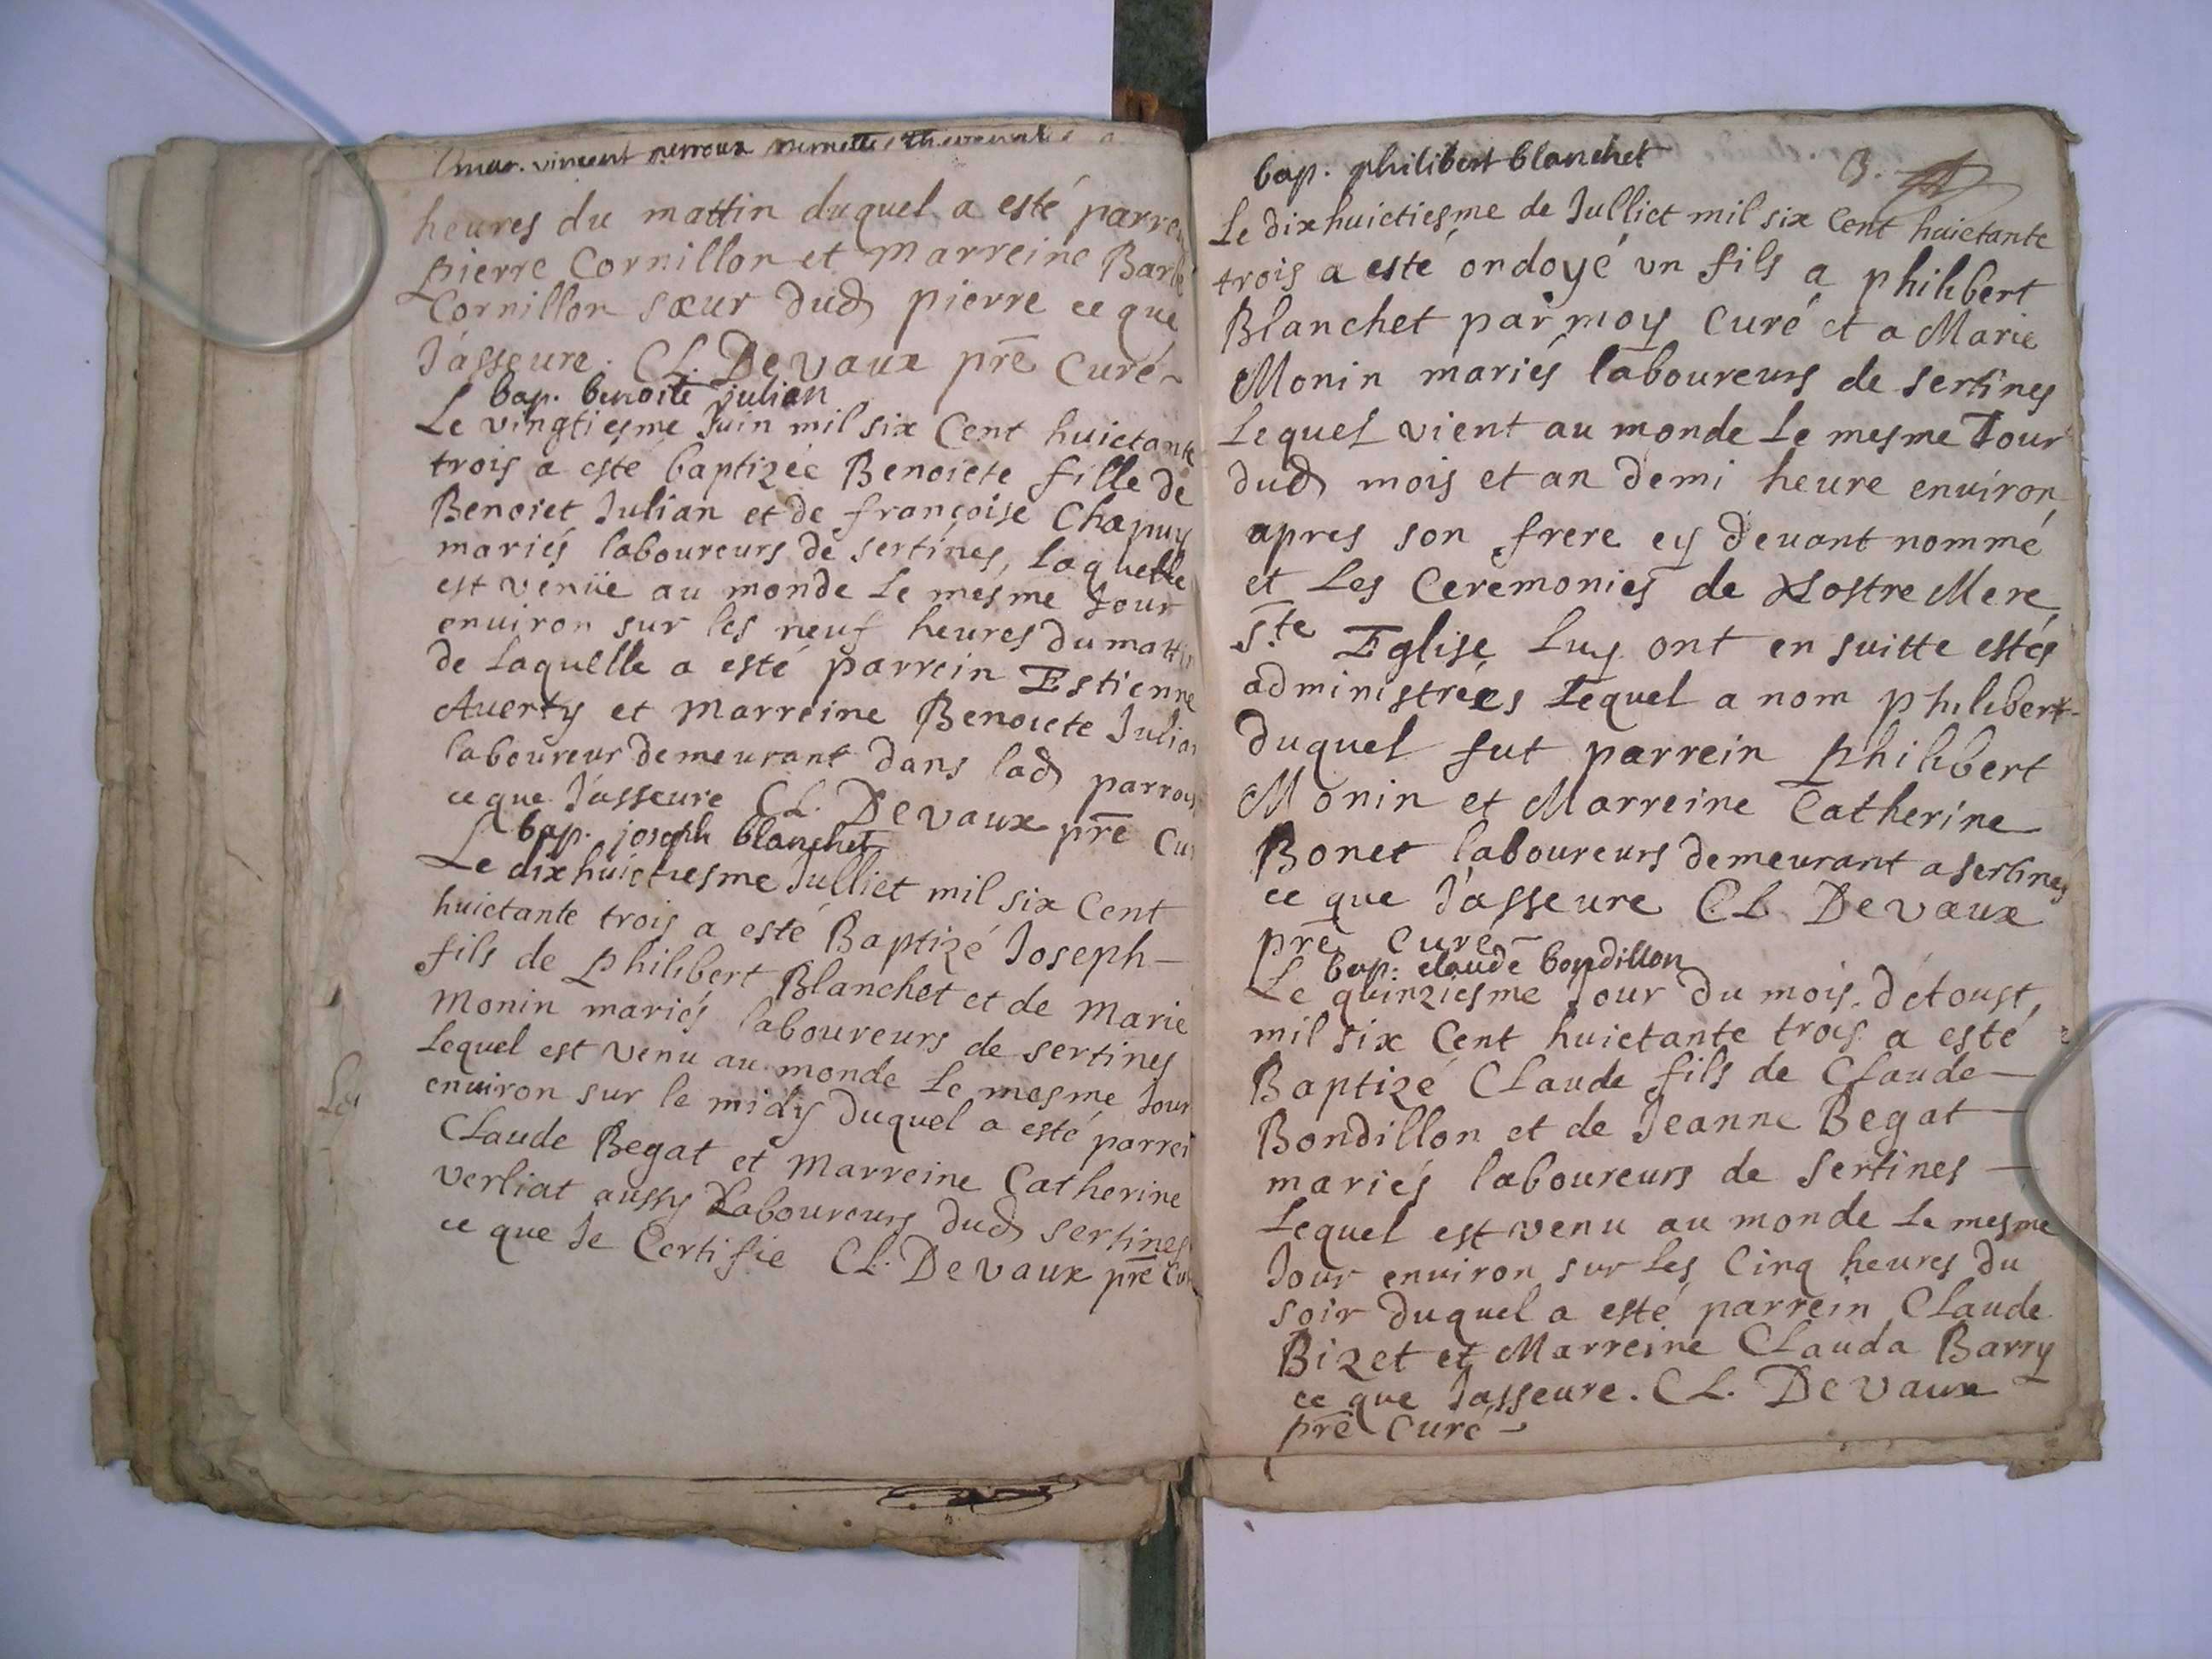 mar. vincent perroux
heures du mattin duquel a esté parre
pierre Cornillon et marreine Barbe
Cornillon sœur dud pierre ce que
J'asseure. CL. Devaux pre Curé
bap. benoite julian
Le vingtiesme Juin mil six Cent huictante
trois a esté baptizée Benoicte fille de
Benoict Julian et de françoise Chapuy
mariés laboureurs de sertines, Laquelle
est venüe au monde Le mesme Jour
environ sur les neuf heures du matti
de Laquelle a esté parrein Estienne
Averty et marreine Benoicte Julian
laboureur demeurant dans lad parrois
ce que J'asseure CL. Devaux pre Cu
bap. joseph blanchet
Le dixhuictiesme Julliet mil six Cent
huictante trois a esté Baptizé Joseph
fils de Philibert Blanchet et de Marie
Monin mariés laboureurs de sertines
Lequel est venu au monde Le mesme Jour
environ sur le midy duquel a esté parrei
Claude Begat et marreine Catherine
verliat aussy Laboureurs dud sertines
ce que Je Certifie CL. Devaux pre Cu
bap. philibert blanchet
3.
Le dixhuictiesme de Julliet mil six Cent huictante
trois a esté ondoyé vn fils a philibert
Blanchet par moy Curé et a Marie
Monin mariés laboureurs de sertines
Lequel vient au monde Le mesme Jour
dud mois et an demi heure environ
apres son frere cy devant nommé
et Les Ceremonies de Nostre Mere
Ste Eglise Luy ont en suitte estés
administrées Lequel a nom philibert
duquel fut parrein philibert
Monin et Marreine Catherine
Bonet laboureurs demeurant a sertines
ce que J'asseure CL Devaux
pre Curé
bap. claude bondillon
Le quinziesme Jour du mois d'Aoust,
mil six Cent huictante trois a esté
Baptizé Claude fils de Claude
Bondillon et de Jeanne Begat
mariés laboureurs de Sertines
Lequel est venu au monde Le mesme
Jour environ sur Les Cinq heures du
soir duquel a esté parrein Claude
Bizet et Marreine Clauda Barry
ce que J'asseure. CL. Devaux
pre Curé